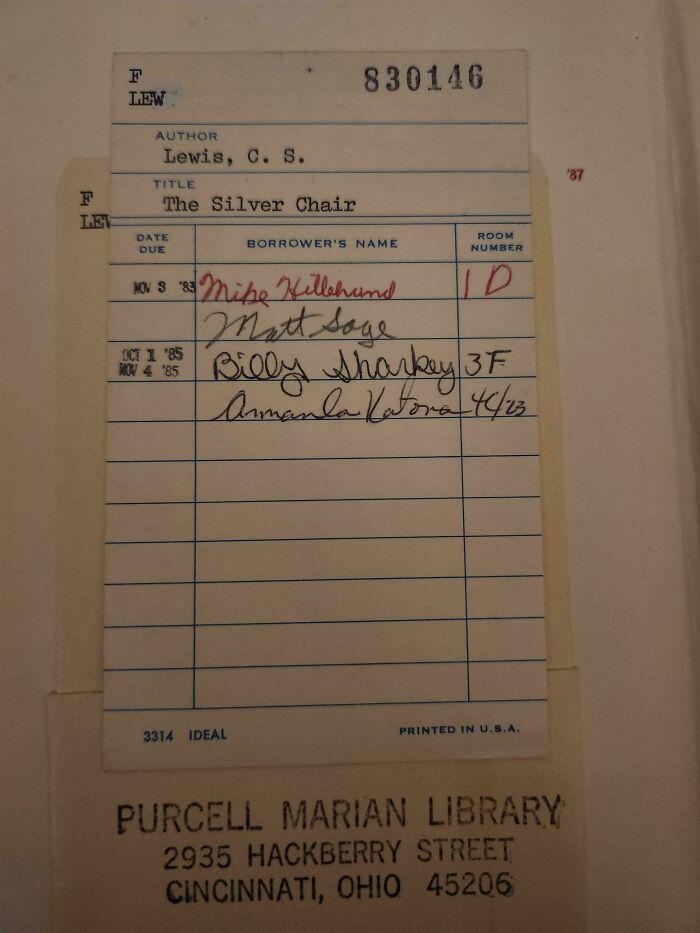 F 830146
LEW
AUTHOR
Lewis, C. S.
'87
TITLE
F
The Silver Chair
LEW
DATE DUE BORROWER'S NAME ROOM NUMBER
NOV 3 '83 Mike 1 D
Matt Sage
OCT 1 '85 Billy Sharkey 3F
NOV 4 '85
Amanda Katona 4C/23
3314 IDEAL PRINTED IN U.S.A.
PURCELL MARIAN LIBRARY
2935 HACKBERRY STREET
CINCINNATI, OHIO 45206